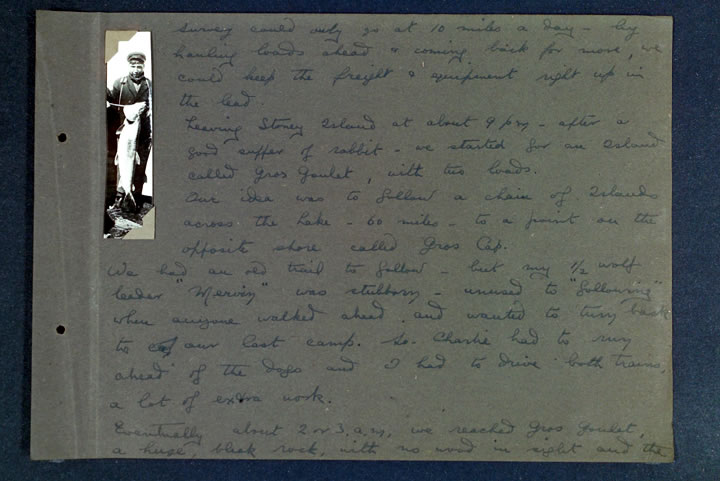 survey could only go at 10 miles a day - by
hauling loads ahead & coming back for more, we
could keep the freight & equipment right up in
the lead.
Leaving Stoney Island at about 9 pm - after a
good supper of rabbit - we started for an Island
called Gros Goulet, with two loads.
Our idea was to follow a chain of Islands
across the Lake - 60 miles - to a point on the
opposite shore called Gros Cap.
We had an old trail to follow - but my 1/2 wolf
leader "Mervin" was stubborn - unused to "following"
when anyone walked ahead and wanted to turn back
to our last camp. So Charlie had to run
ahead of the dogs and I had to drive both trains,
a lot of extra work.
Eventually about 2 or 3. a.m. we reached Gros Goulet,
a huge, black rock, with no wood in sight and the